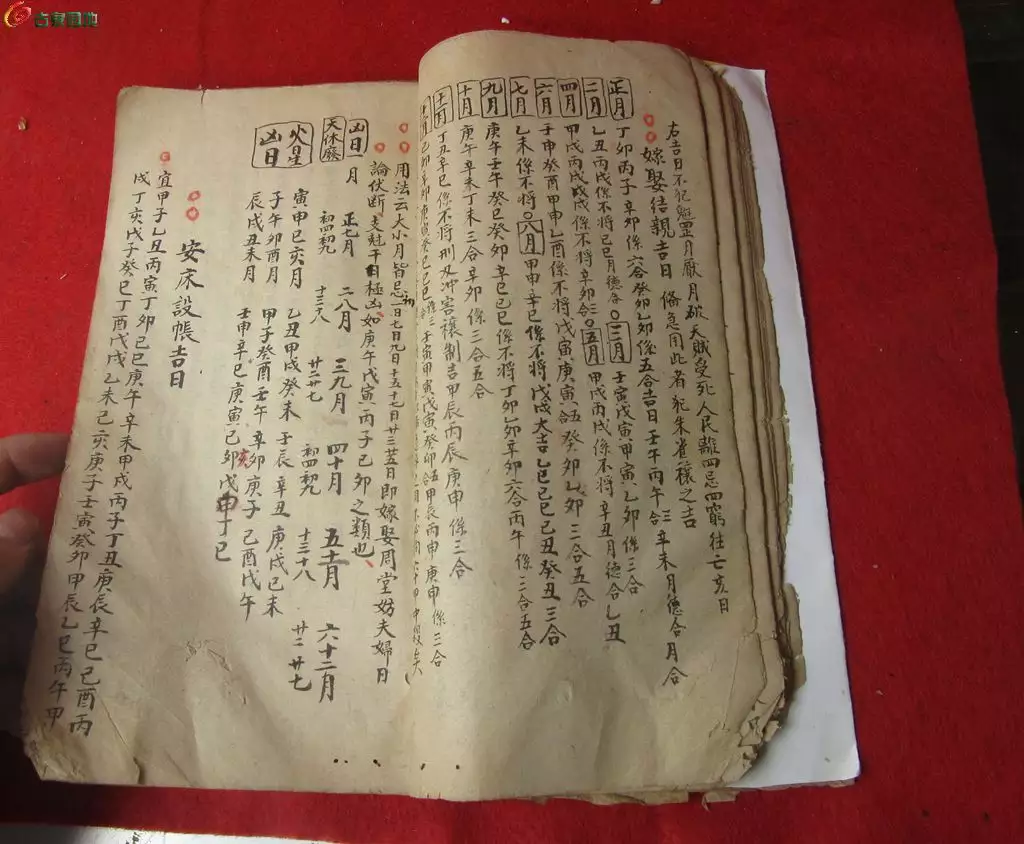 右吉日不犯魁罡月厭月破天賊受死人民離四忌四窮往亡亥日
嫁娶結親吉日 偹急用此者 犯朱雀穰之吉
正月 丁卯丙子辛卯係六合癸卯乙卯係五合吉日壬午丙午三合辛未月德合月合
二月 乙丑丙戌係不将己巳月德合〇三月壬寅戊寅甲寅乙卯係三合
四月 甲戌丙戌戊戌係不将辛卯合〇五月甲戌丙戌係不将辛丑月德合乙丑
六月 壬申癸酉甲申乙酉係不将戊寅庚寅合五癸卯乙卯三合五合
七月 乙未係不将〇八月甲申辛巳係不将戊戌大吉乙巳己巳己丑癸丑三合
九月 庚午壬午癸巳癸卯辛巳己巳係不将丁卯乙卯辛卯六合丙午係三合五合
十月 庚午辛未丁未三合辛卯係三合五合
十一月 丁丑辛巳係不将刑刄冲害穰制吉甲辰丙辰庚申係三合
用法云大小月皆忌初一日七日九日十五十七日廿三廿五日即嫁娶周堂妨夫婦日
論伏断 支尅干日極凶如庚午戊寅丙子己卯之類也
凶日一月
天休廢 正七月 二八月 三九月 四十月 五十一月 六十二月
初四初九 十三十八 廿二廿七 初四初九 十三十八 廿二廿七
火星凶日 寅申巳亥月 乙丑甲戌癸未壬辰辛丑庚戌己未
子午卯酉月 甲子癸酉壬午辛卯庚子己酉戊午
辰戌丑未月 壬申辛巳庚寅己亥戊申丁巳
安床設帳吉日
宜甲子乙丑丙寅丁卯己巳庚午辛未甲戌丙子丁丑庚辰辛巳己酉丙
戌丁亥戊子癸巳丁酉戊戌乙未己亥庚子壬寅癸卯甲辰乙巳丙午甲